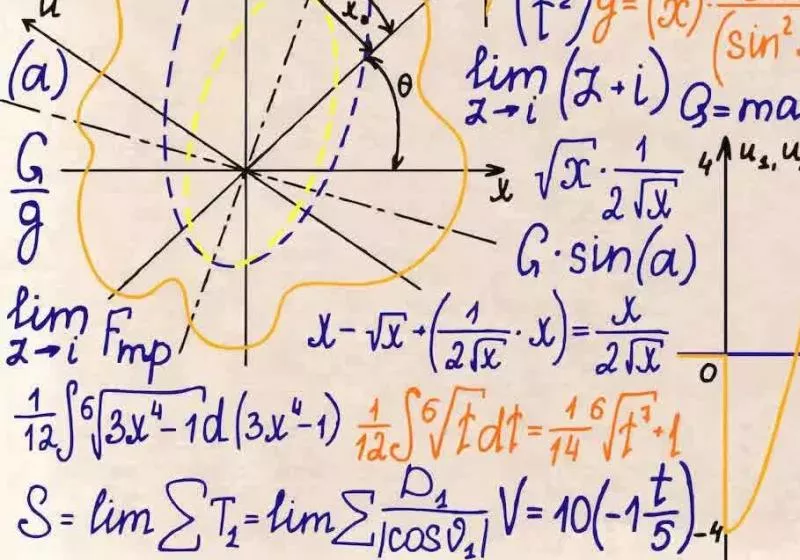 u
x.
(t²) y = (x)·
(sin²
(a)
θ
lim (z+i)
z→i
Q = ma
G/g
x
√x · 1/2√x
4
u₁, u
G · sin(a)
lim
z→i
Fmp
x − √x + (1/2√x · x) = x/2√x
0
1/12 ∫ ⁶√3x⁴−1 d(3x⁴−1)
1/12 ∫ ⁶√t dt = 1/14 ⁶√t⁷ + 1
S = lim ∑ T₁ = lim ∑ D₁/|cosϑ₁|
V = 10(−1 t/5)
−4